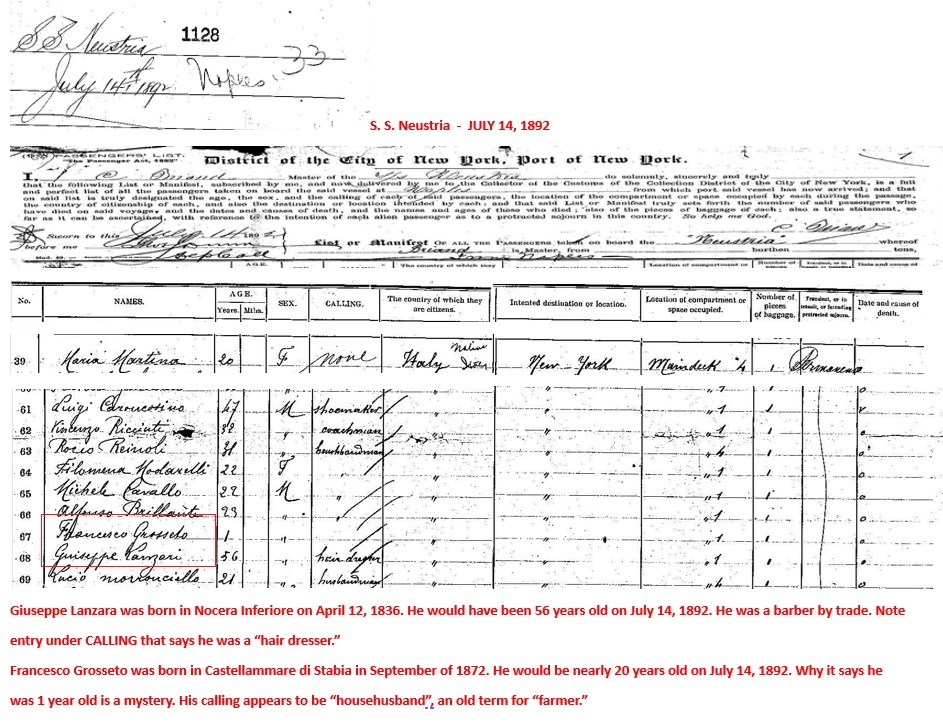 S S Neustria 1128
July 14th 1892 Naples 33
S. S. Neustria - JULY 14, 1892
PASSENGERS' LIST.
"The Passenger Act, 1882"
District of the City of New York, Port of New York.
I, Master of the do solemnly, sincerely and truly
that the following List or Manifest, subscribed by me, and now delivered by me to the Collector of the Customs of the Collection District of the City of New York, is a full
and perfect list of all the passengers taken on board the said vessel at Naples from which port said vessel has now arrived; and that
on said list is truly designated the age, the sex, and the calling of each of said passengers, the location of the compartment or space occupied by each during the passage,
the country of citizenship of each, and also the destination or location intended by each; and that said List or Manifest truly sets forth the number of said passengers who
have died on said voyage, and the dates and causes of death, and the names and ages of those who died; also of the pieces of baggage of each; also a true statement, so
far as it can be ascertained, with reference to the intention of each alien passenger as to a protracted sojourn in this country. So help me God.
Sworn to this July 14 1892
before me List or Manifest OF ALL THE PASSENGERS taken on board the "Neustria" whereof
is Master, from Naples burthen tons,
AGE. The country of which they Location of compartment or Number of Date and cause of
No. NAMES. AGE. Years. Mths. SEX. CALLING. The country of which they are citizens. Intended destination or location. Location of compartment or space occupied. Number of pieces of baggage. Transient, or in transit, or intending protracted sojourn. Date and cause of death.
39 Maria Martina 20 F None Italy Native New-York Maindeck 4 1
61 Luigi Caroucosino 47 M shoemaker " " " 1 1
62 Vincenzo Ricciuti 32 " coachman " " " 1 1
63 Rocco Reinoli 31 " " " " 4 1
64 Filomena Modarelli 22 F " " " " 1 1
65 Michele Cavallo 22 M " " " " 1 1
66 Alfonso Brillante 23 " " " " " 1 1
67 Francesco Grosseto 1 " " " " " 1 1
68 Guiseppe Lanzari 56 " hair dresser " " " 1 1
69 Lucio Morrouciello 21 " husbandman " " " 4 1
Giuseppe Lanzara was born in Nocera Inferiore on April 12, 1836. He would have been 56 years old on July 14, 1892. He was a barber by trade. Note
entry under CALLING that says he was a “hair dresser.”
Francesco Grosseto was born in Castellammare di Stabia in September of 1872. He would be nearly 20 years old on July 14, 1892. Why it says he
was 1 year old is a mystery. His calling appears to be “househusband”, an old term for “farmer.”